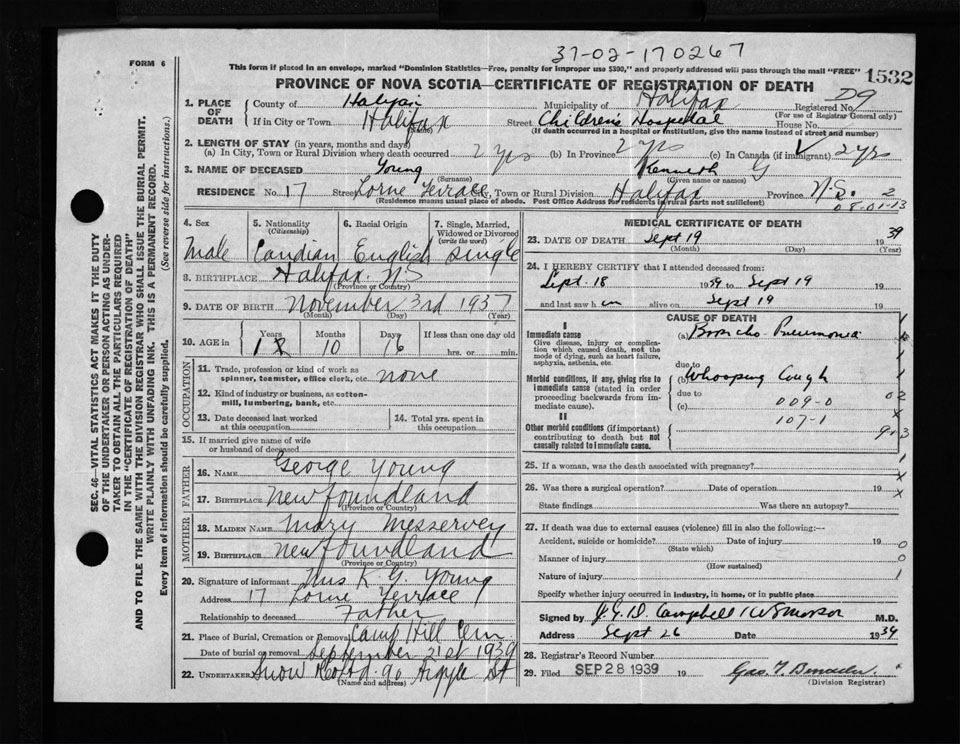 37-02-170267
FORM 6
This form if placed in an envelope, marked "Dominion Statistics—Free, penalty for improper use $300," and properly addressed will pass through the mail "FREE" 1532
PROVINCE OF NOVA SCOTIA—CERTIFICATE OF REGISTRATION OF DEATH
1. PLACE OF DEATH County of Halifax Municipality of Halifax Registered No. D9
(For use of Registrar General only)
If in City or Town Halifax (Name) Street Children's Hospital House No.
(If death occurred in a hospital or institution, give the name instead of street and number)
2. LENGTH OF STAY (in years, months and days)
(a) In City, Town or Rural Division where death occurred 2 yrs (b) In Province 2 yrs (c) In Canada (if immigrant) 2 yrs
3. NAME OF DECEASED Young Kenneth G
(Surname) (Given name or names)
RESIDENCE No. 17 Street Lorne Terrace City, Town or Rural Division Halifax Province N.S. 2
(Residence means usual place of abode. Post Office Address for residents in rural parts not sufficient) 08-01-13
4. Sex 5. Nationality (Citizenship) 6. Racial Origin 7. Single, Married, Widowed or Divorced (write the word)
Male Candian English Single
8. BIRTHPLACE Halifax N.S
(Province or Country)
9. DATE OF BIRTH November 3rd 1937
(Month) (Day) (Year)
10. AGE in Years Months Days If less than one day old
1 10 16 hrs. or min.
OCCUPATION
11. Trade, profession or kind of work as spinner, teamster, office clerk, etc. none
12. Kind of industry or business, as cotton-mill, lumbering, bank, etc.
13. Date deceased last worked at this occupation 14. Total yrs. spent in this occupation
15. If married give name of wife or husband of deceased
FATHER
16. NAME George Young
17. BIRTHPLACE Newfoundland
(Province or Country)
MOTHER
18. MAIDEN NAME Mary Messervey
19. BIRTHPLACE Newfoundland
(Province or Country)
20. Signature of informant K. G. Young
Address 17 Lorne Terrace
Relationship to deceased Father
21. Place of Burial, Cremation or Removal Camp Hill Cem
Date of burial or removal September 21st 1939
22. UNDERTAKER Snow & Co Ltd 90 Argyle St
(Name and address)
MEDICAL CERTIFICATE OF DEATH
23. DATE OF DEATH Sept 19 1939
(Month) (Day) (Year)
24. I HEREBY CERTIFY that I attended deceased from
Sept. 18 1939 to Sept 19
and last saw him alive on Sept 19
CAUSE OF DEATH
I
Immediate cause (a) Broncho Pneumonia
Give disease, injury or complication which caused death, not the mode of dying, such as heart failure, asphyxia, asthenia, etc.
due to
Morbid conditions, if any, giving rise to immediate cause (stated in order proceeding backwards from immediate cause). (b) Whooping Cough
due to 009-0 02
(c)
II 107-1
Other morbid conditions (if important) contributing to death but not causally related to immediate cause.
25. If a woman, was the death associated with pregnancy?
26. Was there a surgical operation? Date of operation 19
State findings Was there an autopsy?
27. If death was due to external causes (violence) fill in also the following:—
Accident, suicide or homicide? Date of injury 19 0
(State which)
Manner of injury 0
(How sustained)
Nature of injury 1
Specify whether injury occurred in industry, in home, or in public place
Signed by J.G.D. Campbell M.D.
Address Sept 26 Date 1939
28. Registrar's Record Number
29. Filed SEP 28 1939 19
(Division Registrar)
SEC. 46—VITAL STATISTICS ACT MAKES IT THE DUTY
OF THE UNDERTAKER OR PERSON ACTING AS UNDER-
TAKER TO OBTAIN ALL THE PARTICULARS REQUIRED
IN THE "CERTIFICATE OF REGISTRATION OF DEATH"
AND TO FILE THE SAME WITH THE DIVISION REGISTRAR WHO SHALL ISSUE THE BURIAL PERMIT.
WRITE PLAINLY WITH UNFADING INK. THIS IS A PERMANENT RECORD.
Every item of information should be carefully supplied. (See reverse side for instructions.)